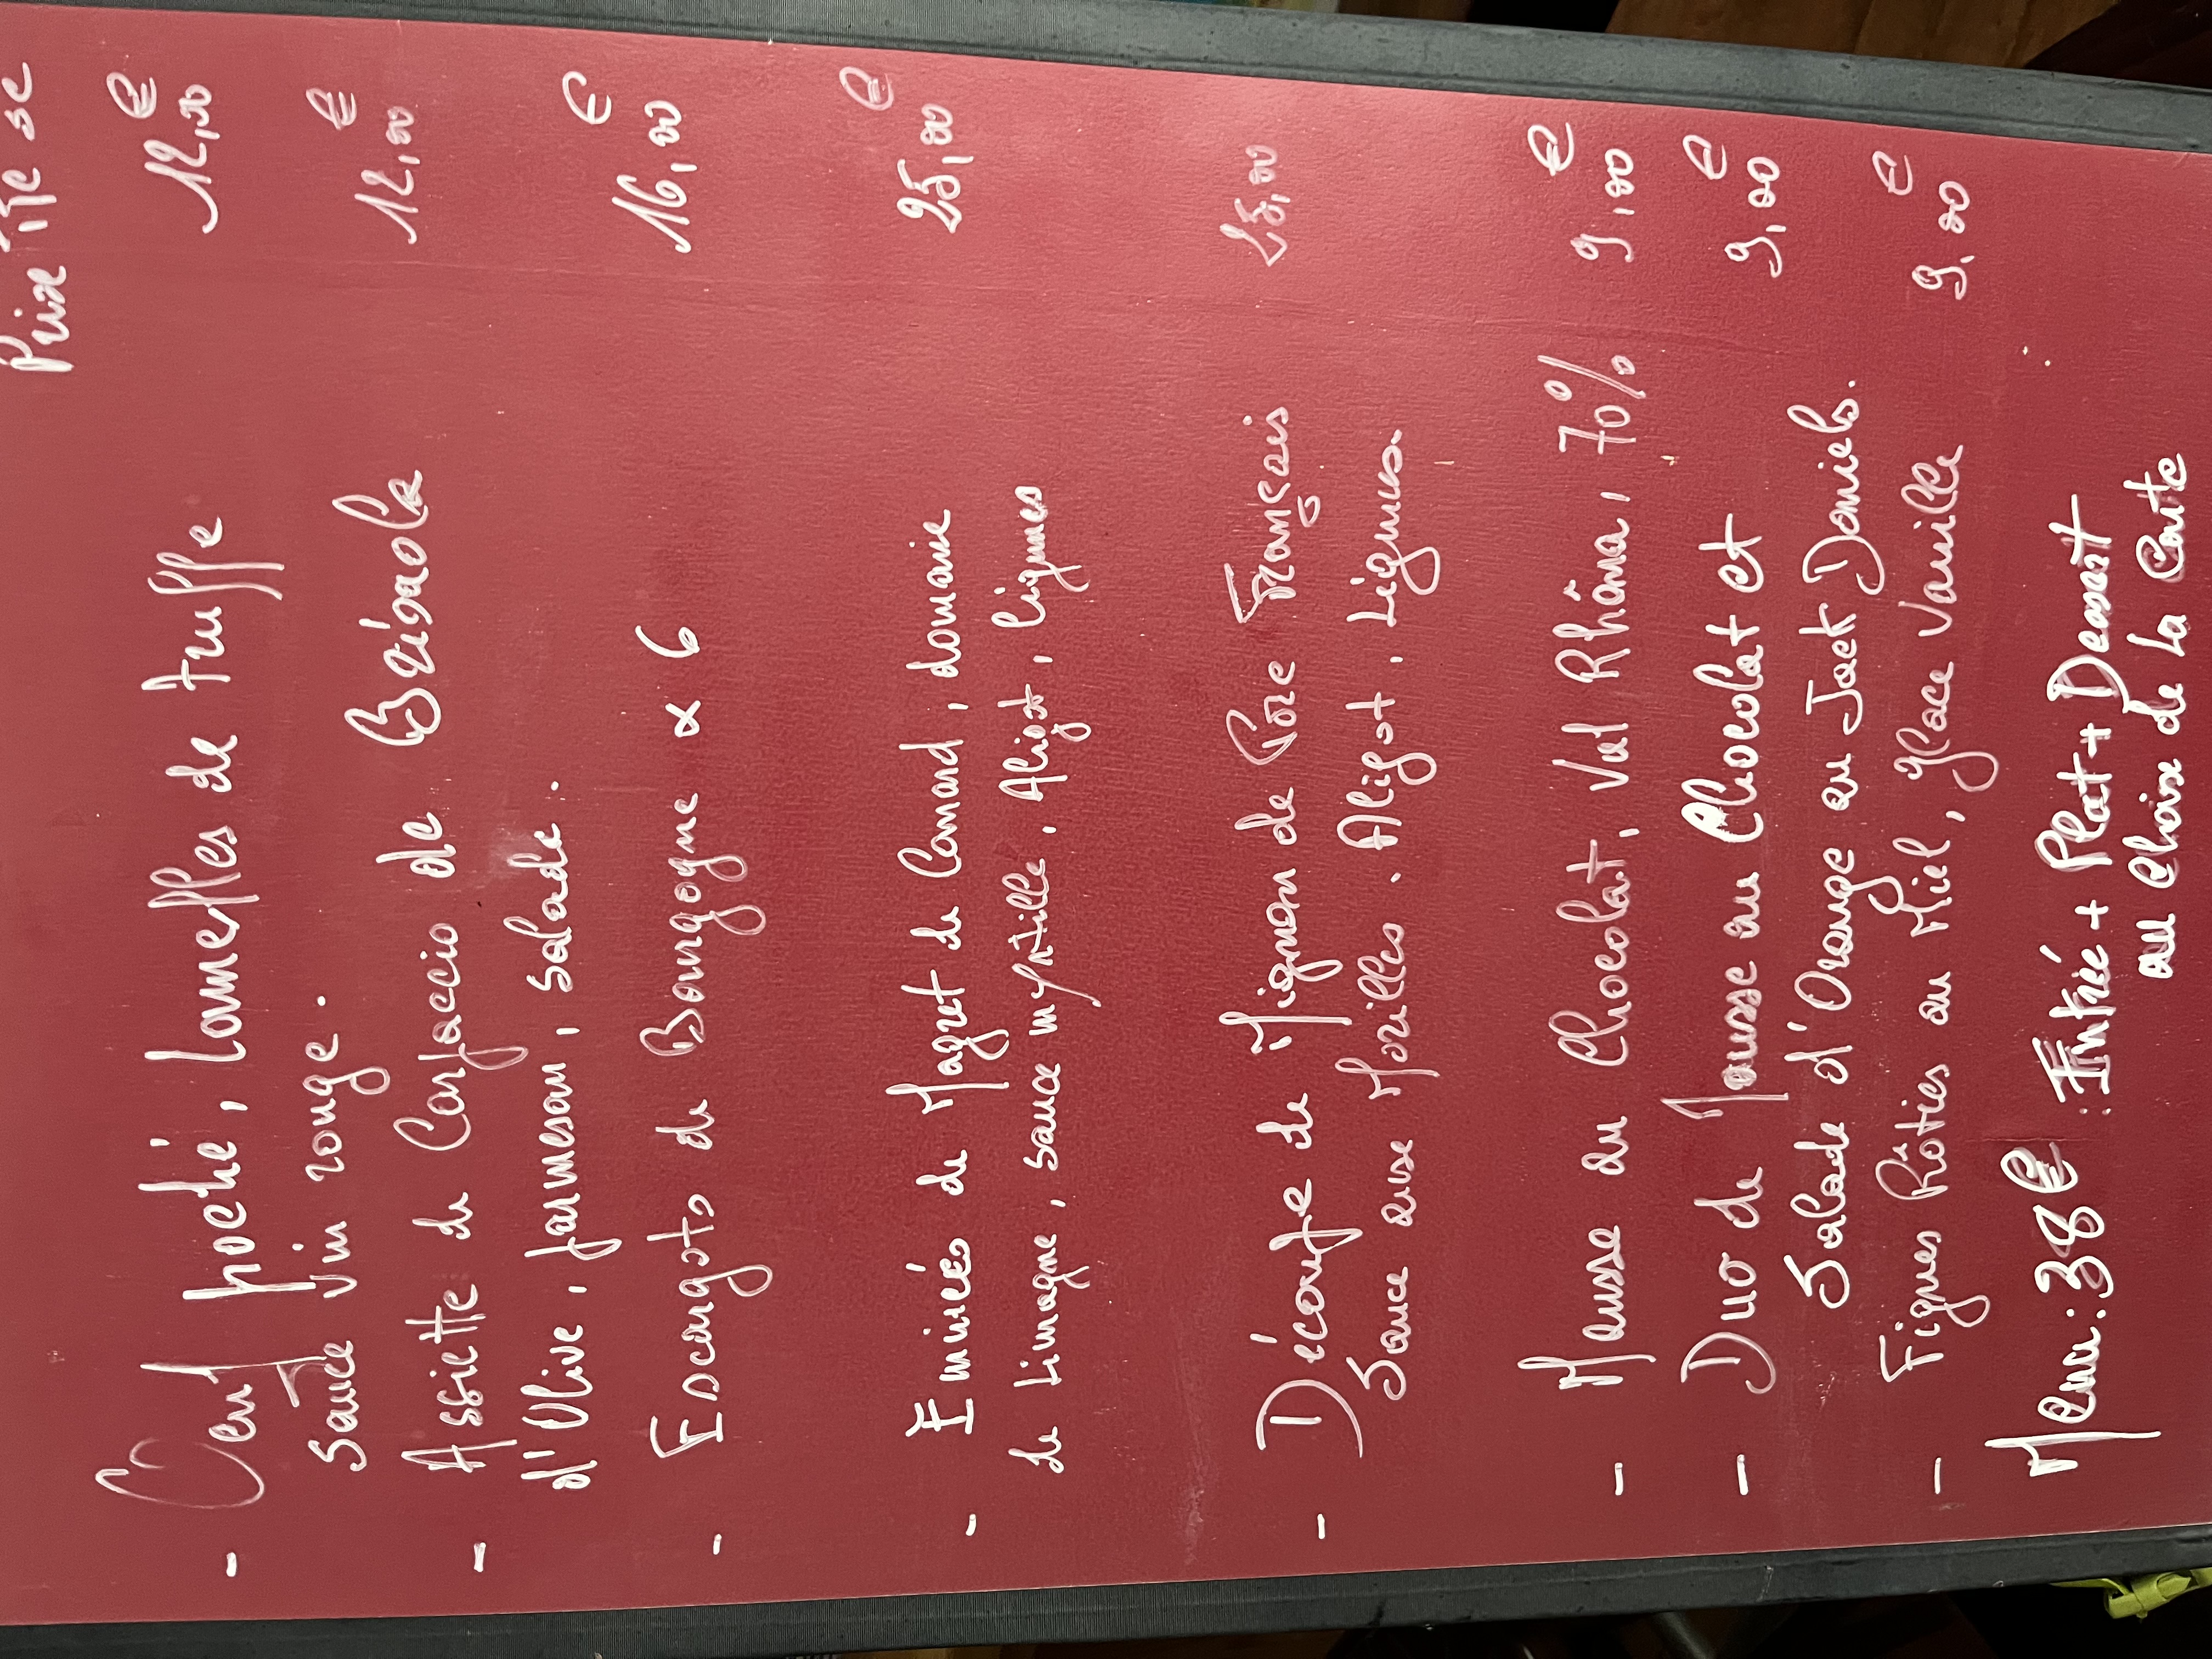 Prix TTC SC
- Oeuf poché, Lamelles de truffe 12,00 €
Sauce Vin rouge.
- Assiette de Carpaccio de Brésaola 12,00 €
d'Olive, parmesan, salade.
- Escargots de Bourgogne x 6 16,00 €
- Emincés de Magret de Canard, domaine 25,00 €
de Limagne, sauce myrtille. Aligot, ligumes
- Découpe de Mignon de Porc Français 25,00
Sauce aux Morilles. Aligot. Ligumes.
- Mousse au Chocolat, Val Rhôna, 70% 9,00 €
- Duo de Mousse au Chocolat et 9,00 €
Salade d'Orange au Jack Daniels.
- Figues Rôties au Miel, glace Vanille 9,00 €
Menu: 38 € : Entrée + Plat + Dessert
au Choix de la Carte